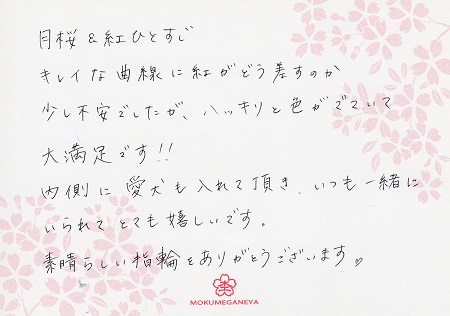 月桜&紅ひとすじ
キレイな曲線に紅がどう差すのか
少し不安でしたが、ハッキリと色がでていて
大満足です!!
内側に愛犬も入れて頂き、いつも一緒に
いられてとても嬉しいです。
素晴らしい指輪をありがとうございます♡
MOKUMEGANEYA